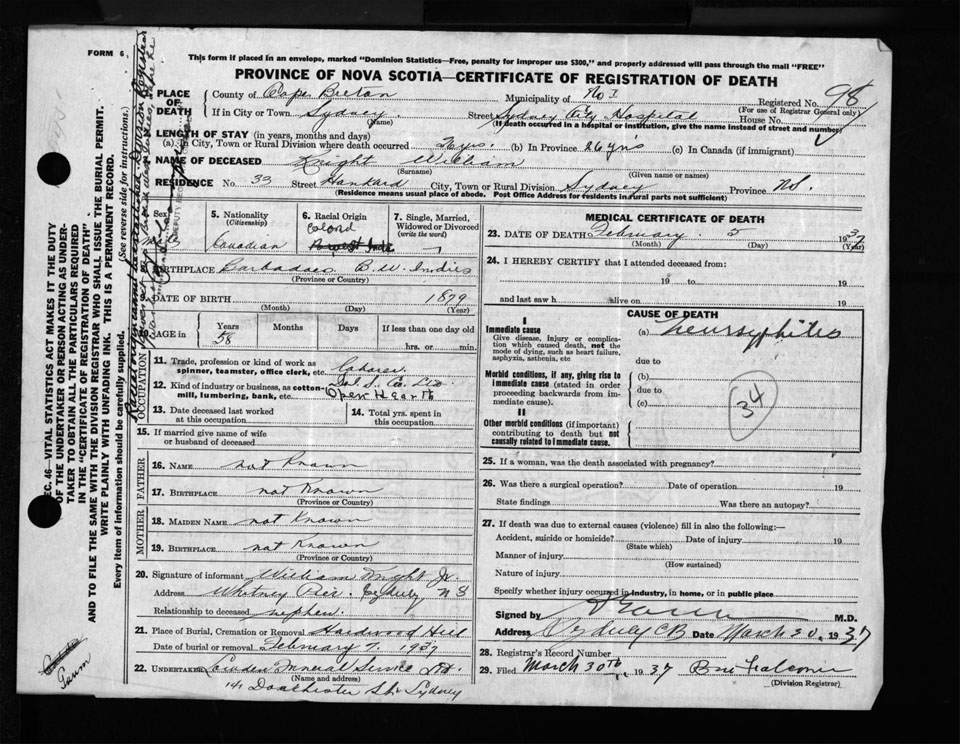 FORM 6
This form if placed in an envelope, marked "Dominion Statistics—Free, penalty for improper use $300," and properly addressed will pass through the mail "FREE"
PROVINCE OF NOVA SCOTIA—CERTIFICATE OF REGISTRATION OF DEATH
PLACE OF DEATH
County of Cape Breton Municipality of No 1 Registered No. 98
(For use of Registrar General only)
If in City or Town Sydney (Name) Street Sydney City Hospital House No.
(If death occurred in a hospital or institution, give the name instead of street and number)
LENGTH OF STAY (in years, months and days)
(a) In City, Town or Rural Division where death occurred (b) In Province 26 yrs (c) In Canada (if immigrant)
NAME OF DECEASED Knight William
(Surname) (Given name or names)
RESIDENCE No. 33 Street Hankard City, Town or Rural Division Sydney Province N.S.
(Residence means usual place of abode. Post Office Address for residents in rural parts not sufficient)
Sex
5. Nationality (Citizenship)
Canadian
6. Racial Origin
Colored
7. Single, Married, Widowed or Divorced (write the word)
BIRTHPLACE Barbadoes B.W. Indies
(Province or Country)
DATE OF BIRTH 1879
(Month) (Day) (Year)
AGE in Years Months Days If less than one day old
58 hrs. or min.
OCCUPATION
11. Trade, profession or kind of work as spinner, teamster, office clerk, etc. Laborer
12. Kind of industry or business, as cotton-mill, lumbering, bank, etc. Co. Ltd
Open Hearth
13. Date deceased last worked at this occupation
14. Total yrs. spent in this occupation
15. If married give name of wife or husband of deceased
FATHER
16. NAME not Known
17. BIRTHPLACE not Known
(Province or Country)
MOTHER
18. MAIDEN NAME not Known
19. BIRTHPLACE not Known
(Province or Country)
20. Signature of informant William Knight Jr.
Address Whitney Pier Sydney N S
Relationship to deceased nephew
21. Place of Burial, Cremation or Removal Hardwood Hill
Date of burial or removal February 7 1937
22. UNDERTAKER Funeral Service Ltd.
(Name and address)
141 Dorchester St. Sydney
MEDICAL CERTIFICATE OF DEATH
23. DATE OF DEATH February 5 1937
(Month) (Day) (Year)
24. I HEREBY CERTIFY that I attended deceased from:
19 to 19
and last saw h alive on 19
CAUSE OF DEATH
I
Immediate cause
Give disease, injury or complication which caused death, not the mode of dying, such as heart failure, asphyxia, asthenia, etc
(a)
due to
Morbid conditions, if any, giving rise to immediate cause (stated in order proceeding backwards from immediate cause).
(b)
due to
(c)
34
II
Other morbid conditions (if important) contributing to death but not causally related to immediate cause.
25. If a woman, was the death associated with pregnancy?
26. Was there a surgical operation? Date of operation 19
State findings Was there an autopsy?
27. If death was due to external causes (violence) fill in also the following:—
Accident, suicide or homicide? Date of injury 19
(State which)
Manner of injury
(How sustained)
Nature of injury
Specify whether injury occurred in industry, in home, or in public place
Signed by M.D.
Address Sydney CB Date March 30, 1937
28. Registrar's Record Number
29. Filed March 30th 1937
(Division Registrar)
SEC. 46—VITAL STATISTICS ACT MAKES IT THE DUTY
OF THE UNDERTAKER OR PERSON ACTING AS UNDERTAKER TO OBTAIN ALL THE PARTICULARS REQUIRED
IN THE "CERTIFICATE OF REGISTRATION OF DEATH"
AND TO FILE THE SAME WITH THE DIVISION REGISTRAR WHO SHALL ISSUE THE BURIAL PERMIT.
WRITE PLAINLY WITH UNFADING INK. THIS IS A PERMANENT RECORD.
Every item of information should be carefully supplied. (See reverse side for instructions.)